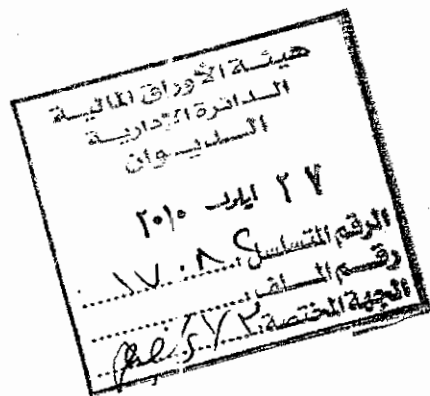 هيئة الأوراق المالية
الدائرة الإدارية
الديوان
٢٧ ايلول ٢٠١٠
الرقم المتسلسل: ١٧٠٨٢
رقم الملف:
الجهة المختصة: